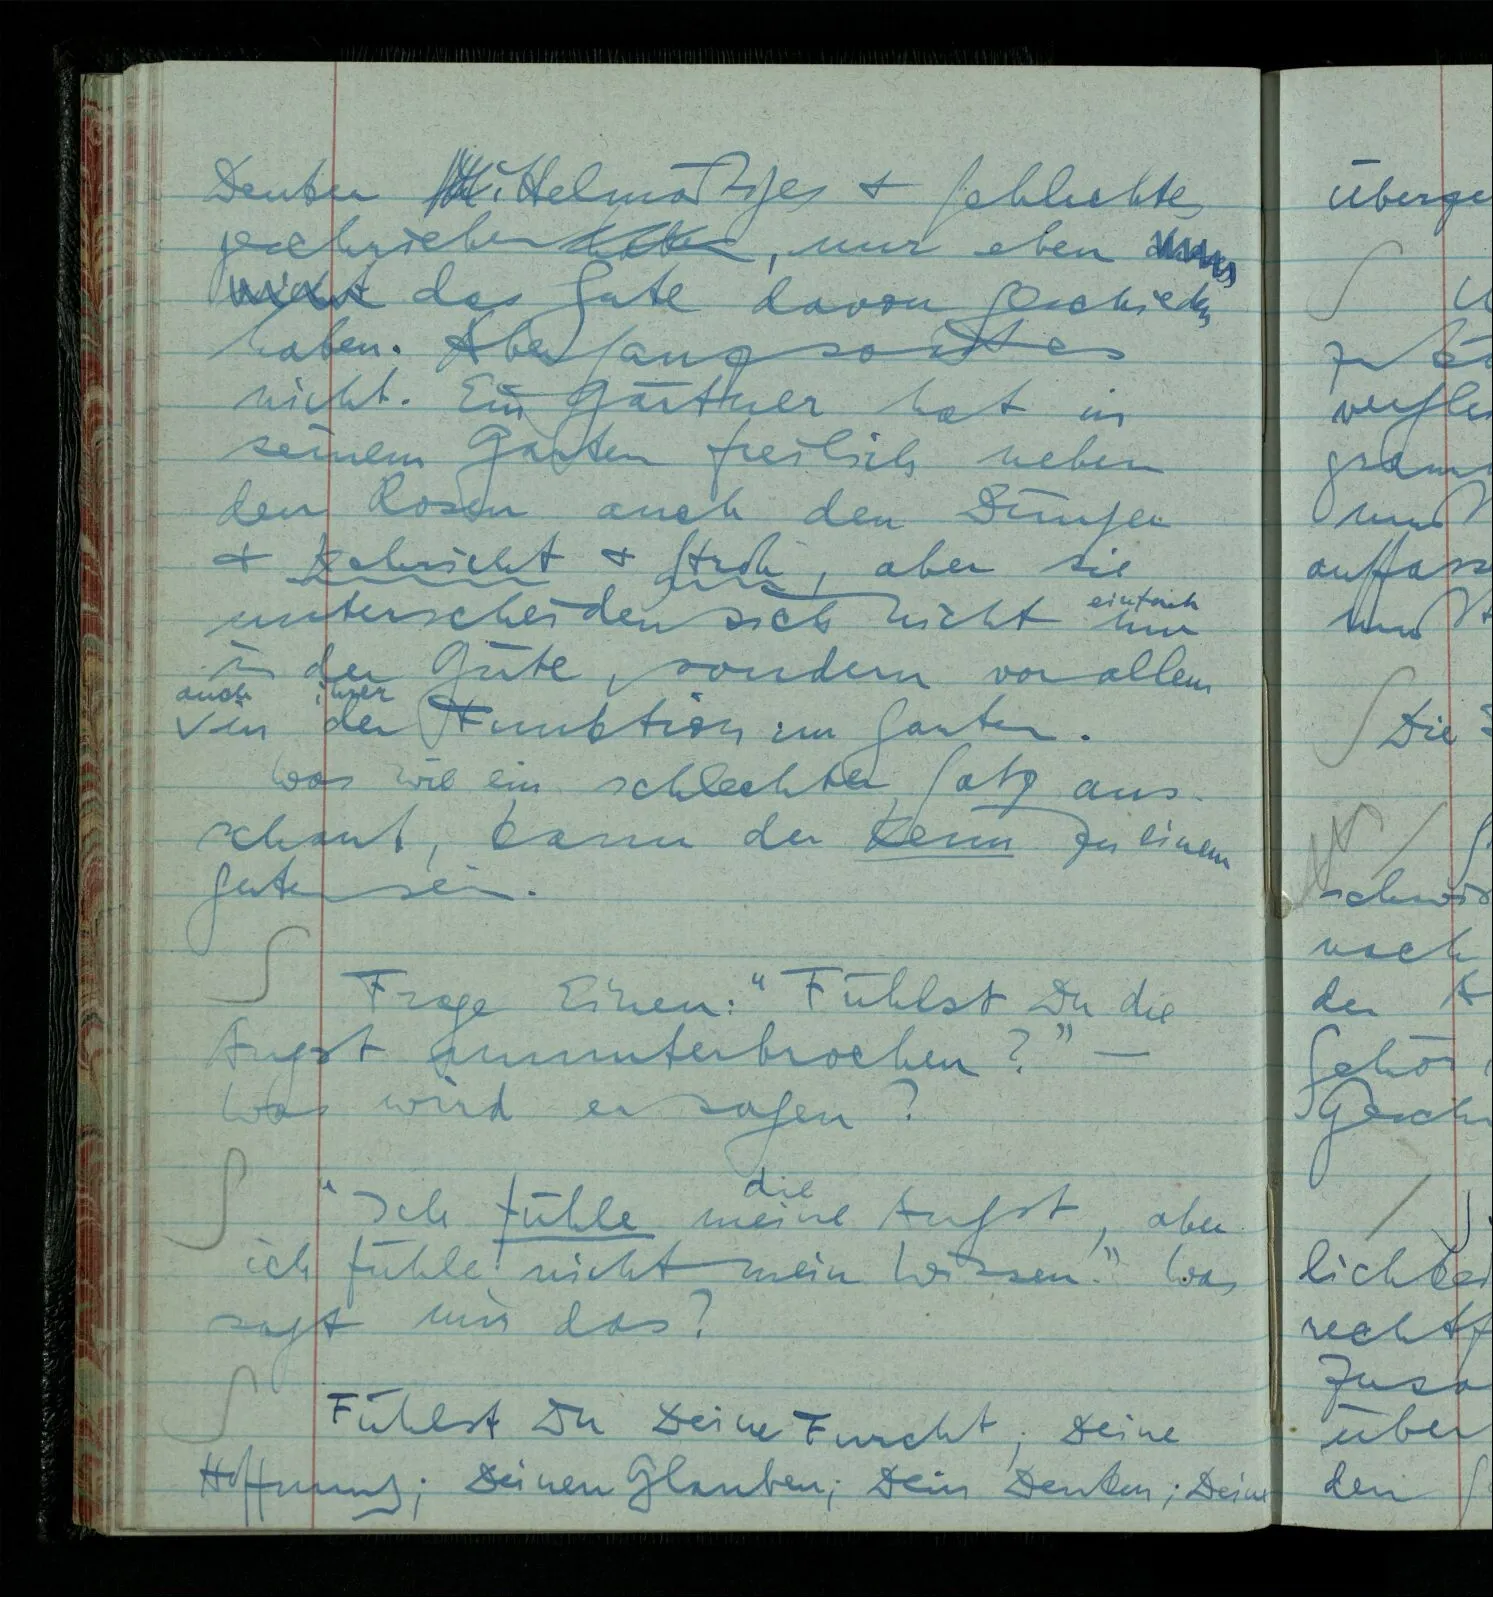 Denken Mittelmäßiges & Schlechtes
geschrieben hätten, nur eben
nicht das Gute davon geschieden
haben. Aber ganz so ist es
nicht. Ein Gärtner hat in
seinem Garten freilich neben
den Rosen auch den Dünger
& Kehricht & Stroh, aber sie
unterscheiden sich nicht einfach nur
in der Güte, sondern vor allem
auch in ihrer der Funktion im Garten.
Was wie ein schlechter Satz aus-
schaut, kann der Keim zu einem
guten sein.
Frage Einen: “Fühlst Du die
Angst ununterbrochen?” —
Was wird er sagen?
die
“Ich fühle meine Angst, aber
ich fühle nicht mein Wissen.” Was
sagt mir das?
Fühlst Du Deine Furcht; Deine
Hoffnung; Deinen Glauben; Dein Denken; Deine
überge
Die
schwir
nach
der
Gehör
lichkei
rechtf
Zusa
über
den